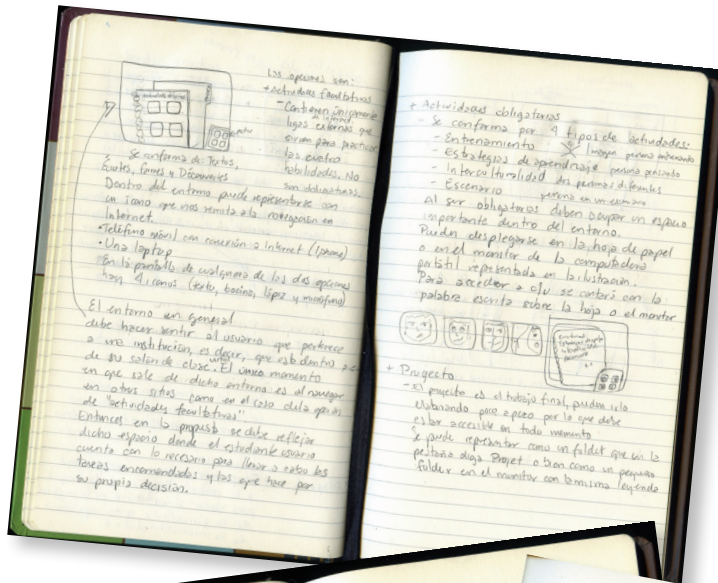 Las opciones son:
+ Actividades facultativas
- Contienen únicamente
ligas externas que
sirvan para practicar
las cuatro
habilidades. No
son obligatorias.
Se conforma de: Textos,
Dentro del entorno puede representarse con
un icono que nos remita a la navegación en
Internet.
• Teléfono móvil con conexión a Internet (Iphone)
• Una laptop
En la pantalla de cualquiera de las dos opciones
hay 4 iconos (texto, bocina, lápiz y micrófono)
El entorno en general
debe hacer sentir al usuario que pertenece
a una institución, es decir, que está dentro
de su salón de clase. El único momento
en que sale de dicho entorno es al navegar
en otros sitios como en el caso de la opción
de "actividades facultativas"
Entonces en la propuesta se debe reflejar
dicho espacio donde el estudiante usuario
cuenta con lo necesario para llevar a cabo las
tareas encomendadas y las que hace por
su propia decisión.
+ Actividades obligatorias
- Se conforma por 4 tipos de actividades.
- Entrenamiento Imagen persona entrenando
- Estrategias de aprendizaje persona pensando
- Interculturalidad dos personas diferentes
- Escenario persona en un escenario
Al ser obligatorias deben ocupar un espacio
importante dentro del entorno.
Pueden desplegarse en la hoja de papel
o en el monitor de la computadora
portátil representada en la ilustración.
Para acceder a c/u se contará con la
palabra escrita sobre la hoja o el monitor
+ Proyecto
- El proyecto es el trabajo final, pueden irlo
elaborando poco a poco por lo que debe
estar accesible en todo momento
Se puede representar como un folder que en la
pestaña diga Projet o bien como un pequeño
folder en el monitor con la misma leyenda